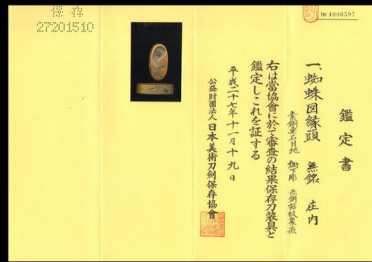 保存
27201510
№ 4000597
鑑定書
一、蜘蛛図縁頭 無銘 庄内
右は當協會に於て審査の結果保存刀装具と
鑑定しこれを証する
平成二十七年十一月十九日
公益財團法人 日本美術刀劍保存協會